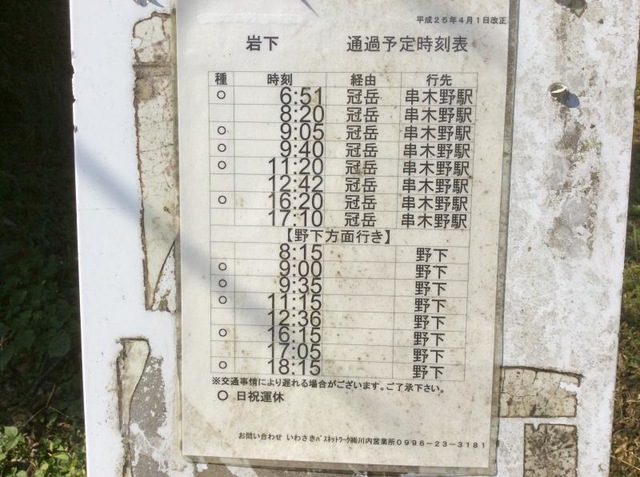 平成25年4月1日改正
岩下 通過予定時刻表
種 時刻 経由 行先
○ 6:51 冠岳 串木野駅
8:20 冠岳 串木野駅
○ 9:05 冠岳 串木野駅
○ 9:40 冠岳 串木野駅
○ 11:20 冠岳 串木野駅
12:42 冠岳 串木野駅
○ 16:20 冠岳 串木野駅
17:10 冠岳 串木野駅
【野下方面行き】
8:15 野下
○ 9:00 野下
○ 9:35 野下
○ 11:15 野下
12:36 野下
○ 16:15 野下
17:05 野下
○ 18:15 野下
※交通事情により遅れる場合がございます。ご了承下さい。
○ 日祝運休
お問い合わせ いわさきバスネットワーク㈱川内営業所0996-23-3181